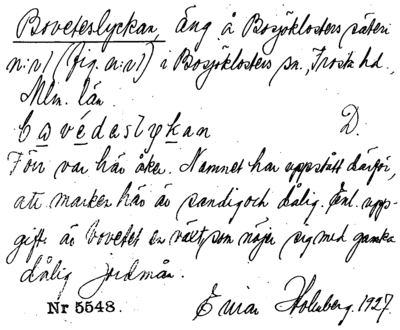 Boveteslyckan, Äng å Bosjöklosters säteri
n:r 1 (fig. n:r 1) i Bosjöklosters sn., Frosta hd.,
Mlm. län.
bavédaslykan D.
Förr var här åker. Namnet har uppstått därför,
att marken här är sandig och dålig. Enl. upp-
gift är bovetet en växt, som nöjer sig med ganska
dålig jordmån.
Nr 5548. Einar Holmberg. 1927.